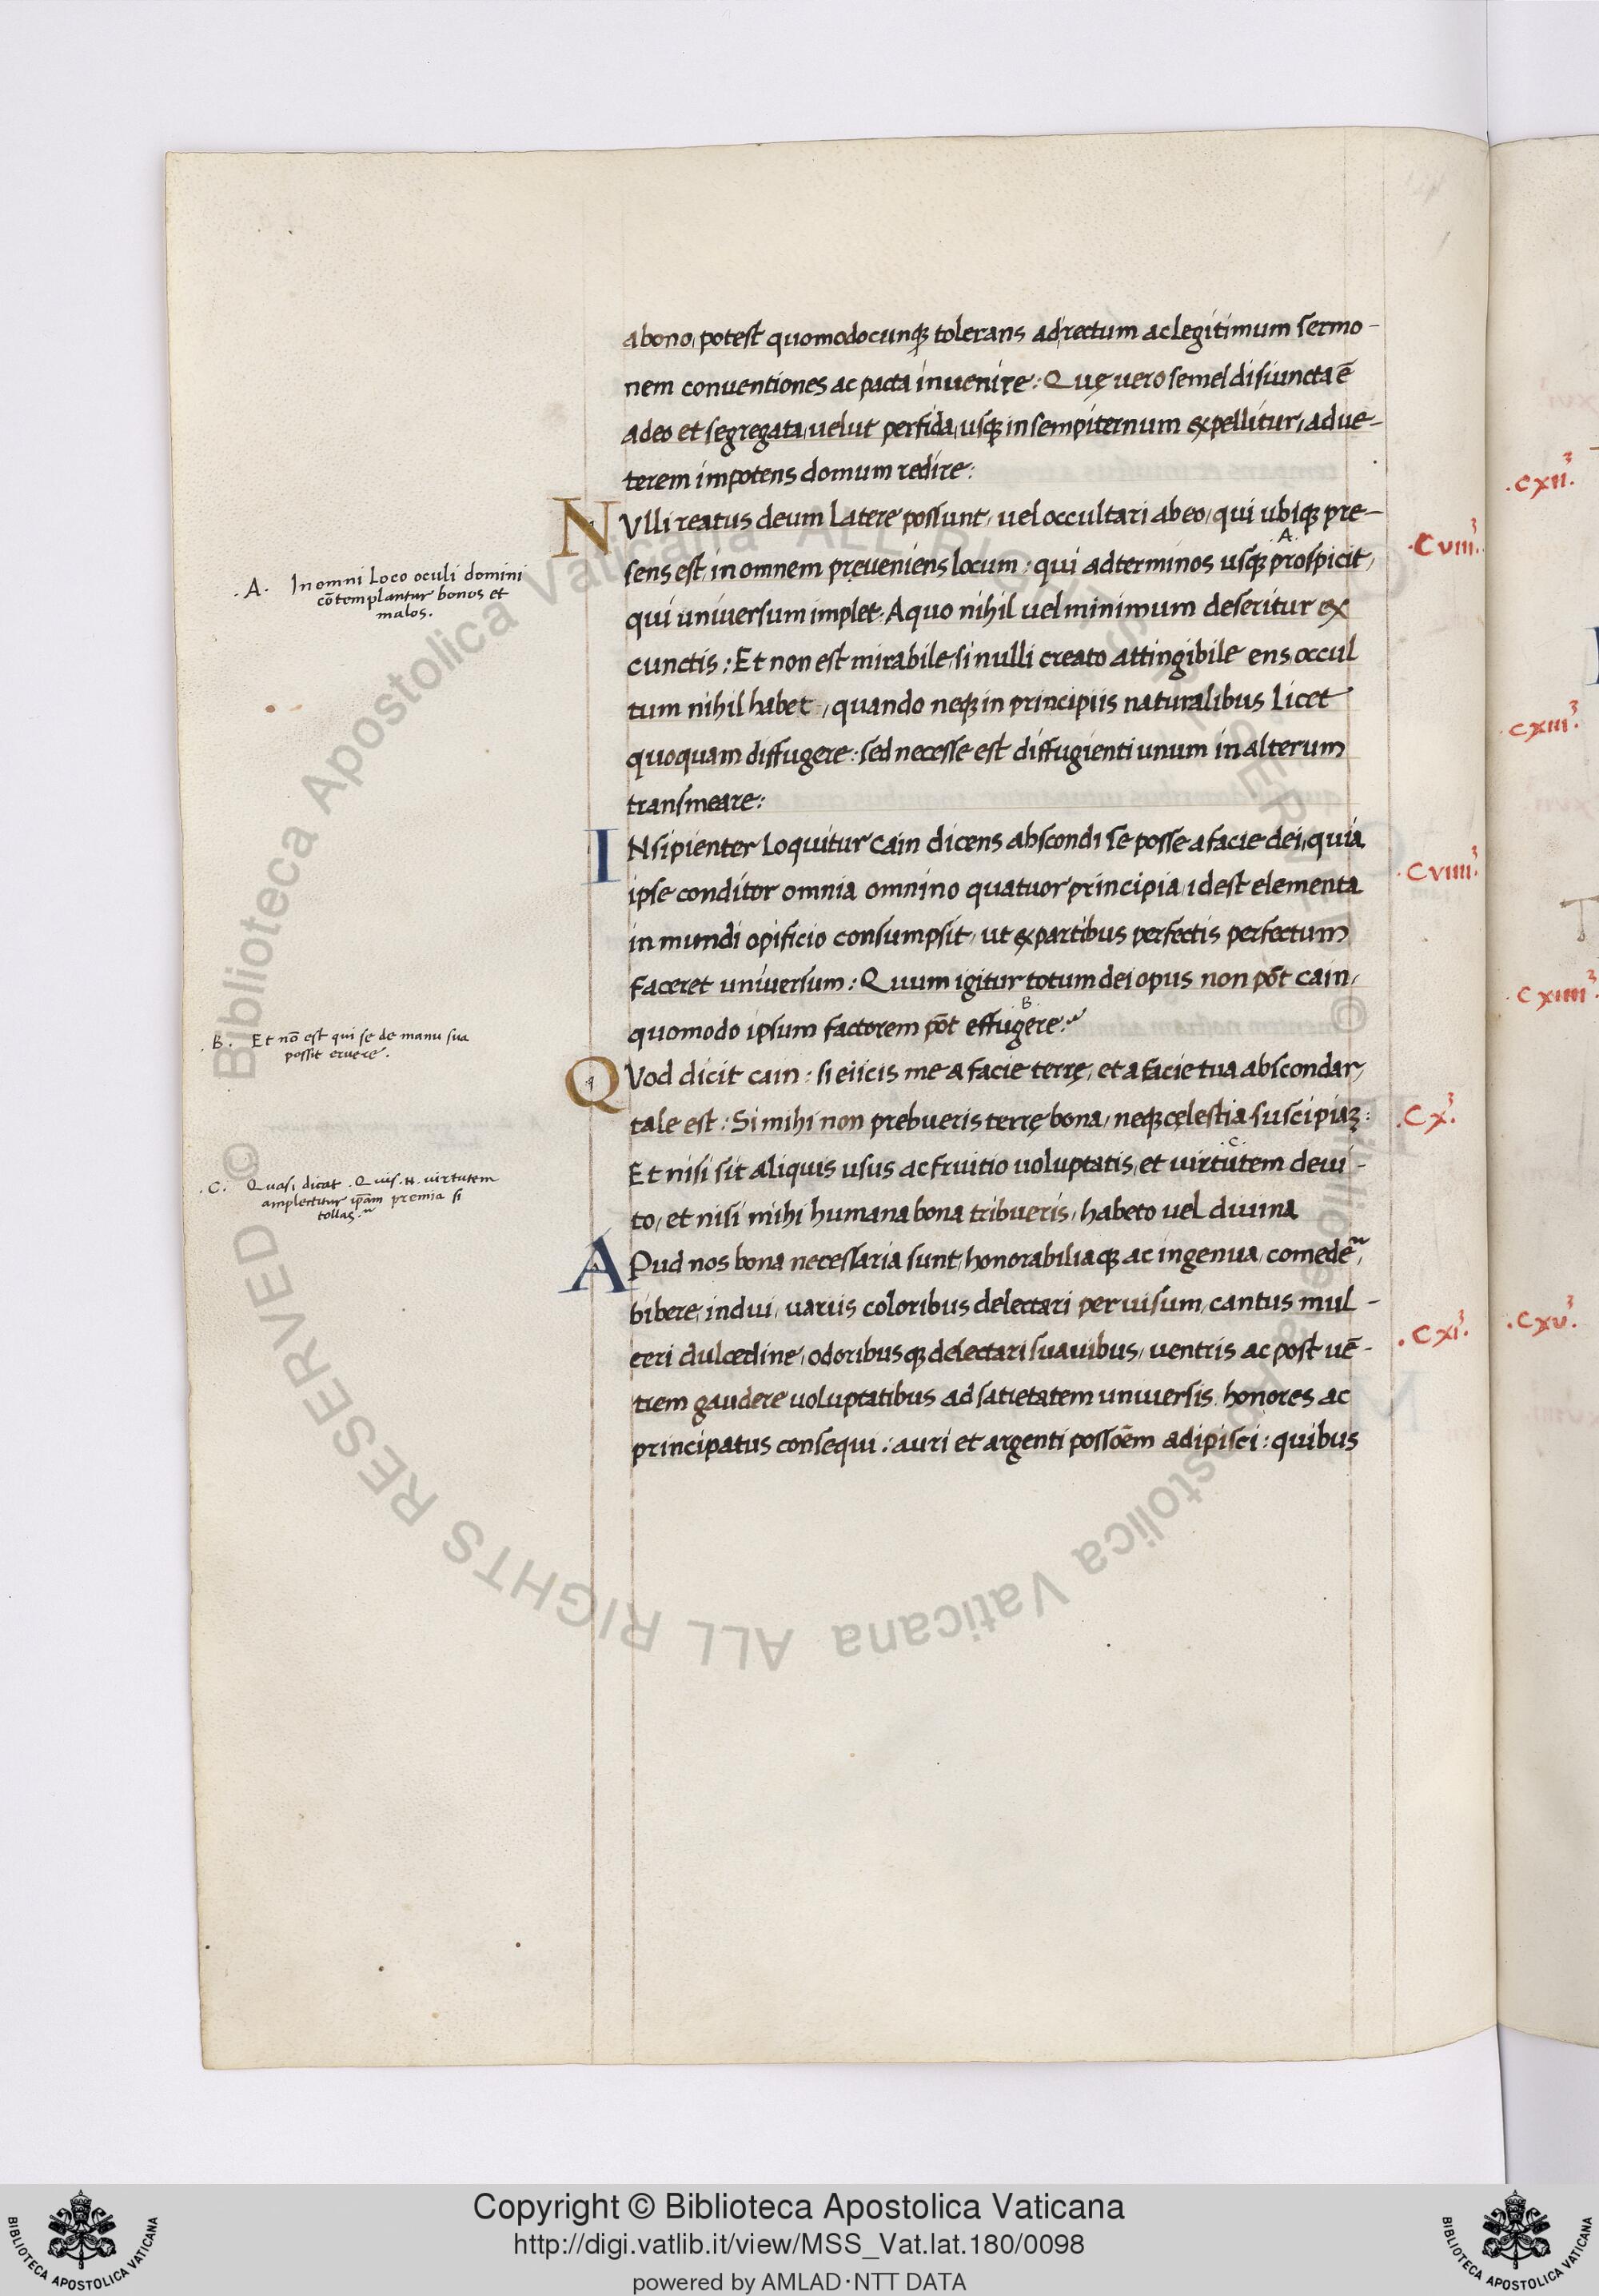 a bono, potest quomodocunq; tolerans ad rectum ac legitimum sermo-
nem conventiones ac pacta invenire: Quę vero semel disiuncta ē
adeo et segregata, velut perfida, usq; in sempiternum expellitur, ad ve-
terem impotens domum redire:
NVlli reatus deum Latere possunt, vel occultari ab eo, qui ubiq; pre-
.A.
sens est, in omnem pręveniens locum: qui ad terminos usq; prospicit,
.CVIII.³
qui universum implet: A quo nihil vel minimum deseritur ex
.A. In omni Loco oculi domini
cōtemplantur bonos et
malos.
cunctis: Et non est mirabile, si nulli creato attingibile ens, occul
tum nihil habet, quando neq; in principiis naturalibus Licet
quoquam diffugere: sed necesse est diffugienti unum in alterum
transmeare:
INsipienter Loquitur Cain dicens abscondi se posse a facie dei, quia
.CVIIII.³
ipse conditor omnia omnino quatuor principia, idest elementa
in mundi opificio consumpsit, ut ex partibus perfectis perfectum
faceret universum: Quum igitur totum dei opus non pōt cain,
B.
quomodo ipsum factorem pōt effugere:
.B. Et nō est qui se de manu sua
possit eruere.
QVod dicit cain: si eiicis me a facie terrę, et a facie tua abscondar,
tale est: Si mihi non prebueris terrę bona, neq; cęlestia suscipiaʒ:
.CX.³
.C.
Et nisi sit aliquis usus ac fruitio voluptatis, et virtutem devi-
.C. Quasi dicat. Quis .N. virtutem
amplectitur ipsam premia si
tollas.
to, et nisi mihi humana bona tribueris, habeto vel divina
APud nos bona necessaria sunt, honorabiliaq; ac ingenua, comede,
bibere, indui, variis coloribus delectari per visum, cantus mul-
.CXI.³
ceri dulcedine, odoribusq; delectari suavibus, ventris ac post vē-
trem gaudere voluptatibus ad satietatem universis, honores ac
principatus consequi: auri et argenti possōem adipisci: quibus
.CXII.³
CXIII.³
.CXIIII.³
.CXV.³
© Biblioteca Apostolica Vaticana ALL RIGHTS RESERVED © Biblioteca Apostolica Vaticana ALL RIGHTS RESERVED
Copyright © Biblioteca Apostolica Vaticana
http://digi.vatlib.it/view/MSS_Vat.lat.180/0098
powered by AMLAD·NTT DATA
BIBLIOTECA APOSTOLICA VATICANA
BIBLIOTECA APOSTOLICA VATICANA